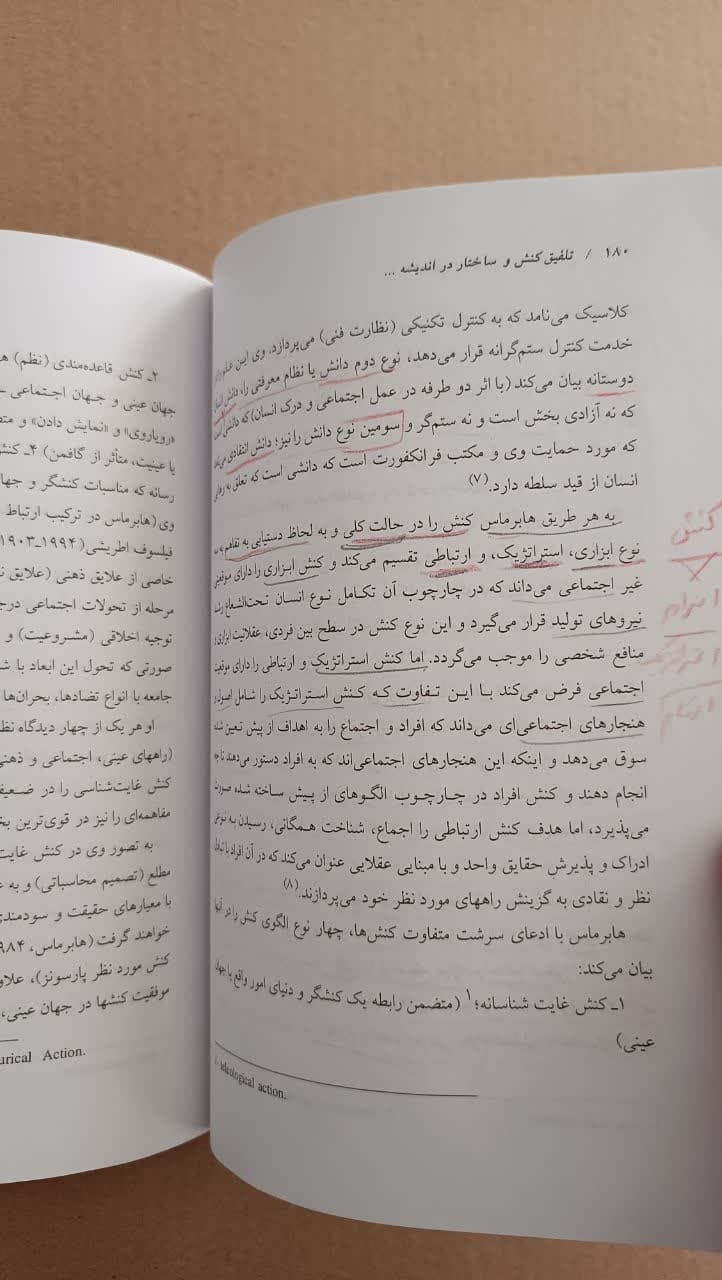 ۱۸۰ / تلفیق کنش و ساختار در اندیشه ...
کلاسیک می‌نامد که به کنترل تکنیکی (نظارت فنی) می‌پردازد. وی این
خدمت کنترل ستم‌گرانه قرار می‌دهد، نوع دوم دانش یا نظام معرفتی را، دانش
دوستانه بیان می‌کند (با اثر دو طرفه در عمل اجتماعی و درک انسان) که
که نه آزادی بخش است و نه ستم‌گر و سومین نوع دانش را نیز؛ دانش انتقادی
که مورد حمایت وی و مکتب فرانکفورت است که دانشی است که تعلق به
انسان از قید سلطه دارد.(۷)
به هر طریق هابرماس کنش را در حالت کلی و به لحاظ دستیابی به تفاهم به
نوع ابزاری، استراتژیک، و ارتباطی تقسیم می‌کند و کنش ابزاری را دارای
غیر اجتماعی می‌داند که در چارچوب آن تکامل نوع انسان تحت‌الشعاع رشد
نیروهای تولید قرار می‌گیرد و این نوع کنش در سطح بین فردی، عقلانیت ابزاری و
منافع شخصی را موجب می‌گردد. اما کنش استراتژیک و ارتباطی را دارای موقعیت
اجتماعی فرض می‌کند با این تفاوت که کنش استراتژیک را شامل اصول و
هنجارهای اجتماعی‌ای می‌داند که افراد و اجتماع را به اهداف از پیش تعیین شده
سوق می‌دهد و اینکه این هنجارهای اجتماعی‌اند که به افراد دستور می‌دهند تا چه
انجام دهند و کنش افراد در چارچوب الگوهای از پیش ساخته شده صورت
می‌پذیرد، اما هدف کنش ارتباطی را اجماع، شناخت همگانی، رسیدن به نوعی
ادراک و پذیرش حقایق واحد و با مبنایی عقلایی عنوان می‌کند که در آن افراد با تبادل
نظر و نقادی به گزینش راههای مورد نظر خود می‌پردازند.(۸)
هابرماس با ادعای سرشت متفاوت کنش‌ها، چهار نوع الگوی کنش را در آنها
بیان می‌کند:
۱ـ کنش غایت شناسانه؛۱ (متضمن رابطه یک کنشگر و دنیای امور واقع یا جهان
عینی)
teleological action.
کنش
۲ـ کنش قاعده‌مندی (نظم)
جهان عینی و جهان اجتماعی ـ
«رویاروی» و «نمایش دادن» و
یا عینیت، متأثر از گافمن) ۴ـ کنش
رسانه که مناسبات کنشگر و
وی (هابرماس در ترکیب ارتباط
فیلسوف اطریشی (۱۹۹۴ـ۱۹۰۳
خاصی از علایق ذهنی (علایق
مرحله از تحولات اجتماعی
توجیه اخلاقی (مشروعیت) و
صورتی که تحول این ابعاد با
جامعه با انواع تضادها، بحران‌ها
او هر یک از چهار دیدگاه
(راههای عینی، اجتماعی و
کنش غایت‌شناسی را در
مفاهمه‌ای را نیز در قوی‌ترین
به تصور وی در کنش غایت
مطلع (تصمیم محاسباتی) و به
با معیارهای حقیقت و سودمندی
خواهند گرفت (هابرماس،
کنش مورد نظر پارسونز)،
موفقیت کنشها در جهان عینی،
Action.